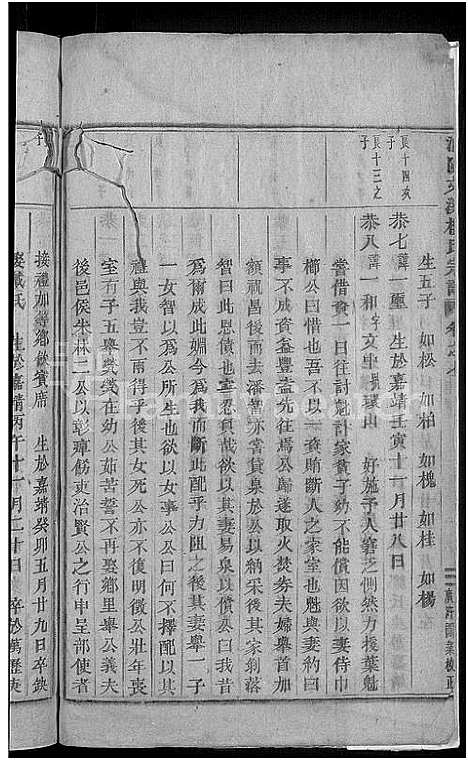 生五子 如松 如柏 如槐 如桂 如楊
良十四亥子
恭七 諱一壐 生於嘉靖壬寅十一月廿八日
良十三之子
恭八 諱一和 字文中 號環山 好施予人窘乏側然方援葉魁
嘗借貲一日抄計魁計家貲子幼不能償因欲以其妻侍巾
櫛公曰惜吾不以一貲賄斷人之家室也魁與妻約曰
事不成資產豐盍先往焉公歸遂取火焚券夫婦舉首加
額祝昌後而去潘智亦嘗貸臬於公以納采後其家剝落
智曰此恩債也室忍負哉欲以其妻易臬以償公曰我昔
為爾成此姻今為我而斷此配乎力阻之後其妻舉一子
一女智以為公所生也欲以女事公公曰何不擇配以其
禮與我豈不兩得乎後其女死公亦不復明徵公壯年喪
室有子五舉煢煢在幼公茹苦誓不再娶鄉里舉公義夫
後邑侯朱林二公以彰瑋餝吏治賢公之行申呈部使者
接禮加尊鄉飲賓席 生於嘉靖癸卯五月廿九日卒缺
娶戴氏 生於嘉靖丙午十一月二十日 卒於萬歷庚